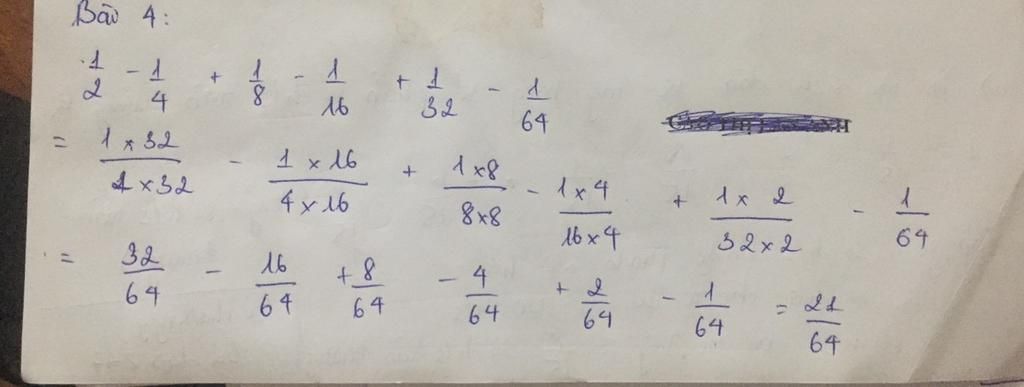 Bài 4:
1/2 - 1/4 + 1/8 - 1/16 + 1/32 - 1/64
= 1 x 32/2 x 32 - 1 x 16/4 x 16 + 1 x 8/8 x 8 - 1 x 4/16 x 4 + 1 x 2/32 x 2 - 1/64
= 32/64 - 16/64 + 8/64 - 4/64 + 2/64 - 1/64 = 21/64